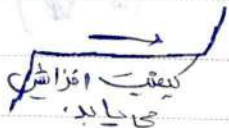 کیفیت افزایش
می‌یابد.